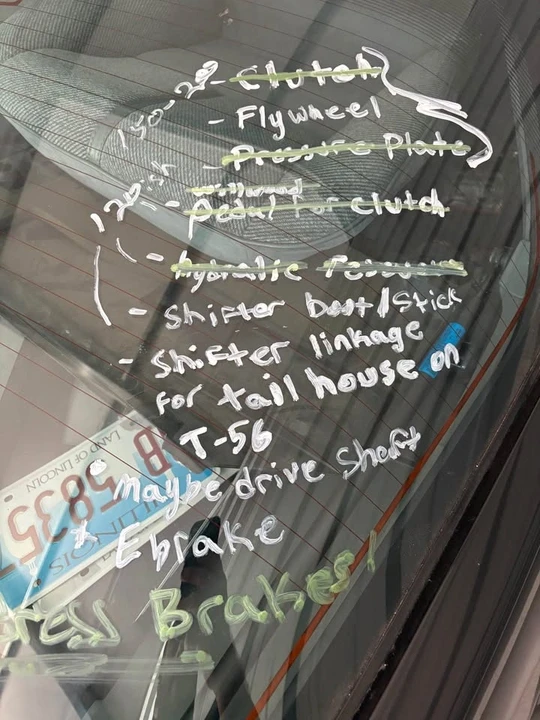 - Clutch
- Flywheel
- Pressure Plate
- Pedal for clutch
- hydraulic
- Shifter boot/Stick
- Shifter linkage
for tail house on
T-56
• maybe drive shaft
x Ebrake
Brakes!
LAND OF LINCOLN
B
5835
ILLINOIS